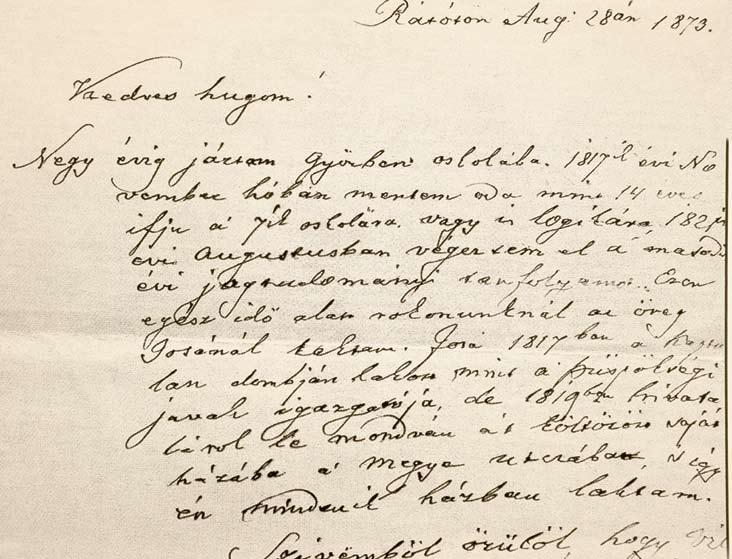 Rátóton Aug. 28án 1873.
Kedves hugom!
Negy évig jártam Győrben oskolába. 1817ik évi No
vember hóban mentem oda mint 14 éves
ifju a 7ik oskolára vagy is logikára, 182
évi Augustusban végeztem el a masodi
évi jogtudományi tanfolyamot. Ezen
egész idő alatt rokonunknál az öreg
Josánál laktam. Josa 1817ben a
lan dombján lakott mint a püspökségi
javak igazgatója, de 1819ben hivata
láról le mondván át költözött saját
házába a megye utczában, s így
én mindenik házban laktam.
Szivemből örülök, hogy